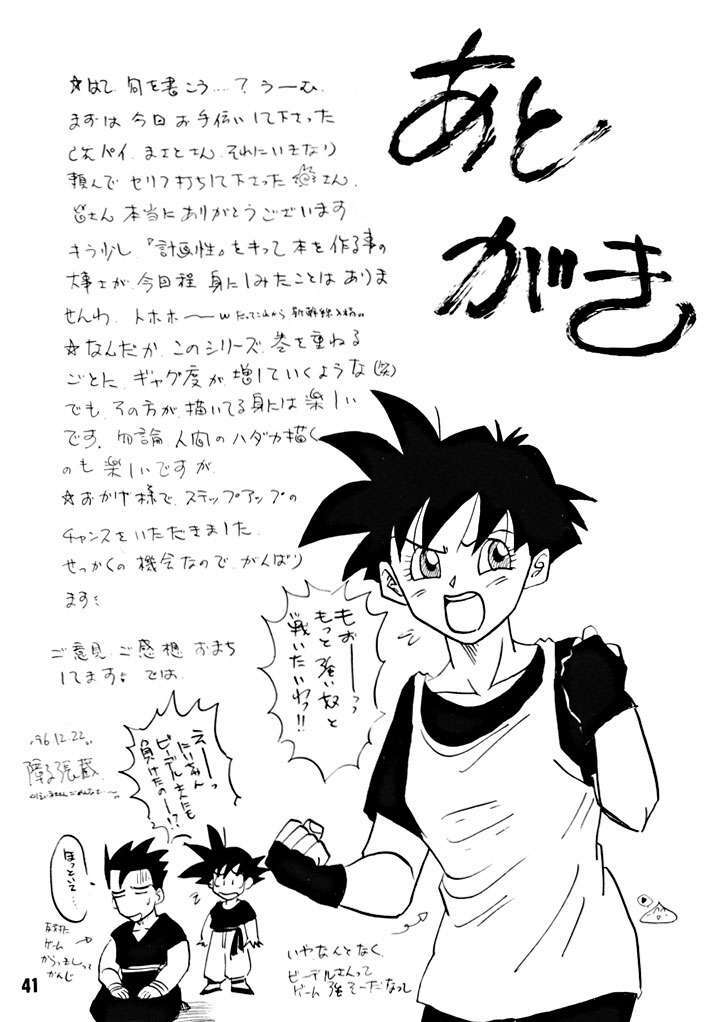 あと
がき
☆はて 何を書こう…？うーむ
まずは今回お手伝いして下さった
パイ、まさとさん、それにいきなり
頼んで セリフ打ちして下さった さん、
皆さん本当にありがとうございます
もう少し、『計画性』をもって本を作る事の
大事さが、今回程 身にしみたことはありま
せんわ、トホホ〜〜w だってこれから新幹線
☆なんだか、このシリーズ、巻を重ねる
ごとに、ギャグ度が、増していくような(笑)
でも、その方が、描いてる身には楽しい
です。勿論 人間のハダカ描く
のも楽しいですが、
☆おかげ様で、ステップアップの
チャンスをいただきました。
せっかくの機会なので、がんばり
ます
ご意見、ご感想 おまち
してます♪ では、
'96.12.22
障子張蔵
もおーーっっ
もっと強い奴と
戦いたいわっ!!
えーーっ
にいちゃん
ビーデルさんにも
負けたのー!?
ほっといて…
ゲーム
からっきしって
かんじ
いやなんとなく
ビーデルさんって
ゲーム強そーだなって
41